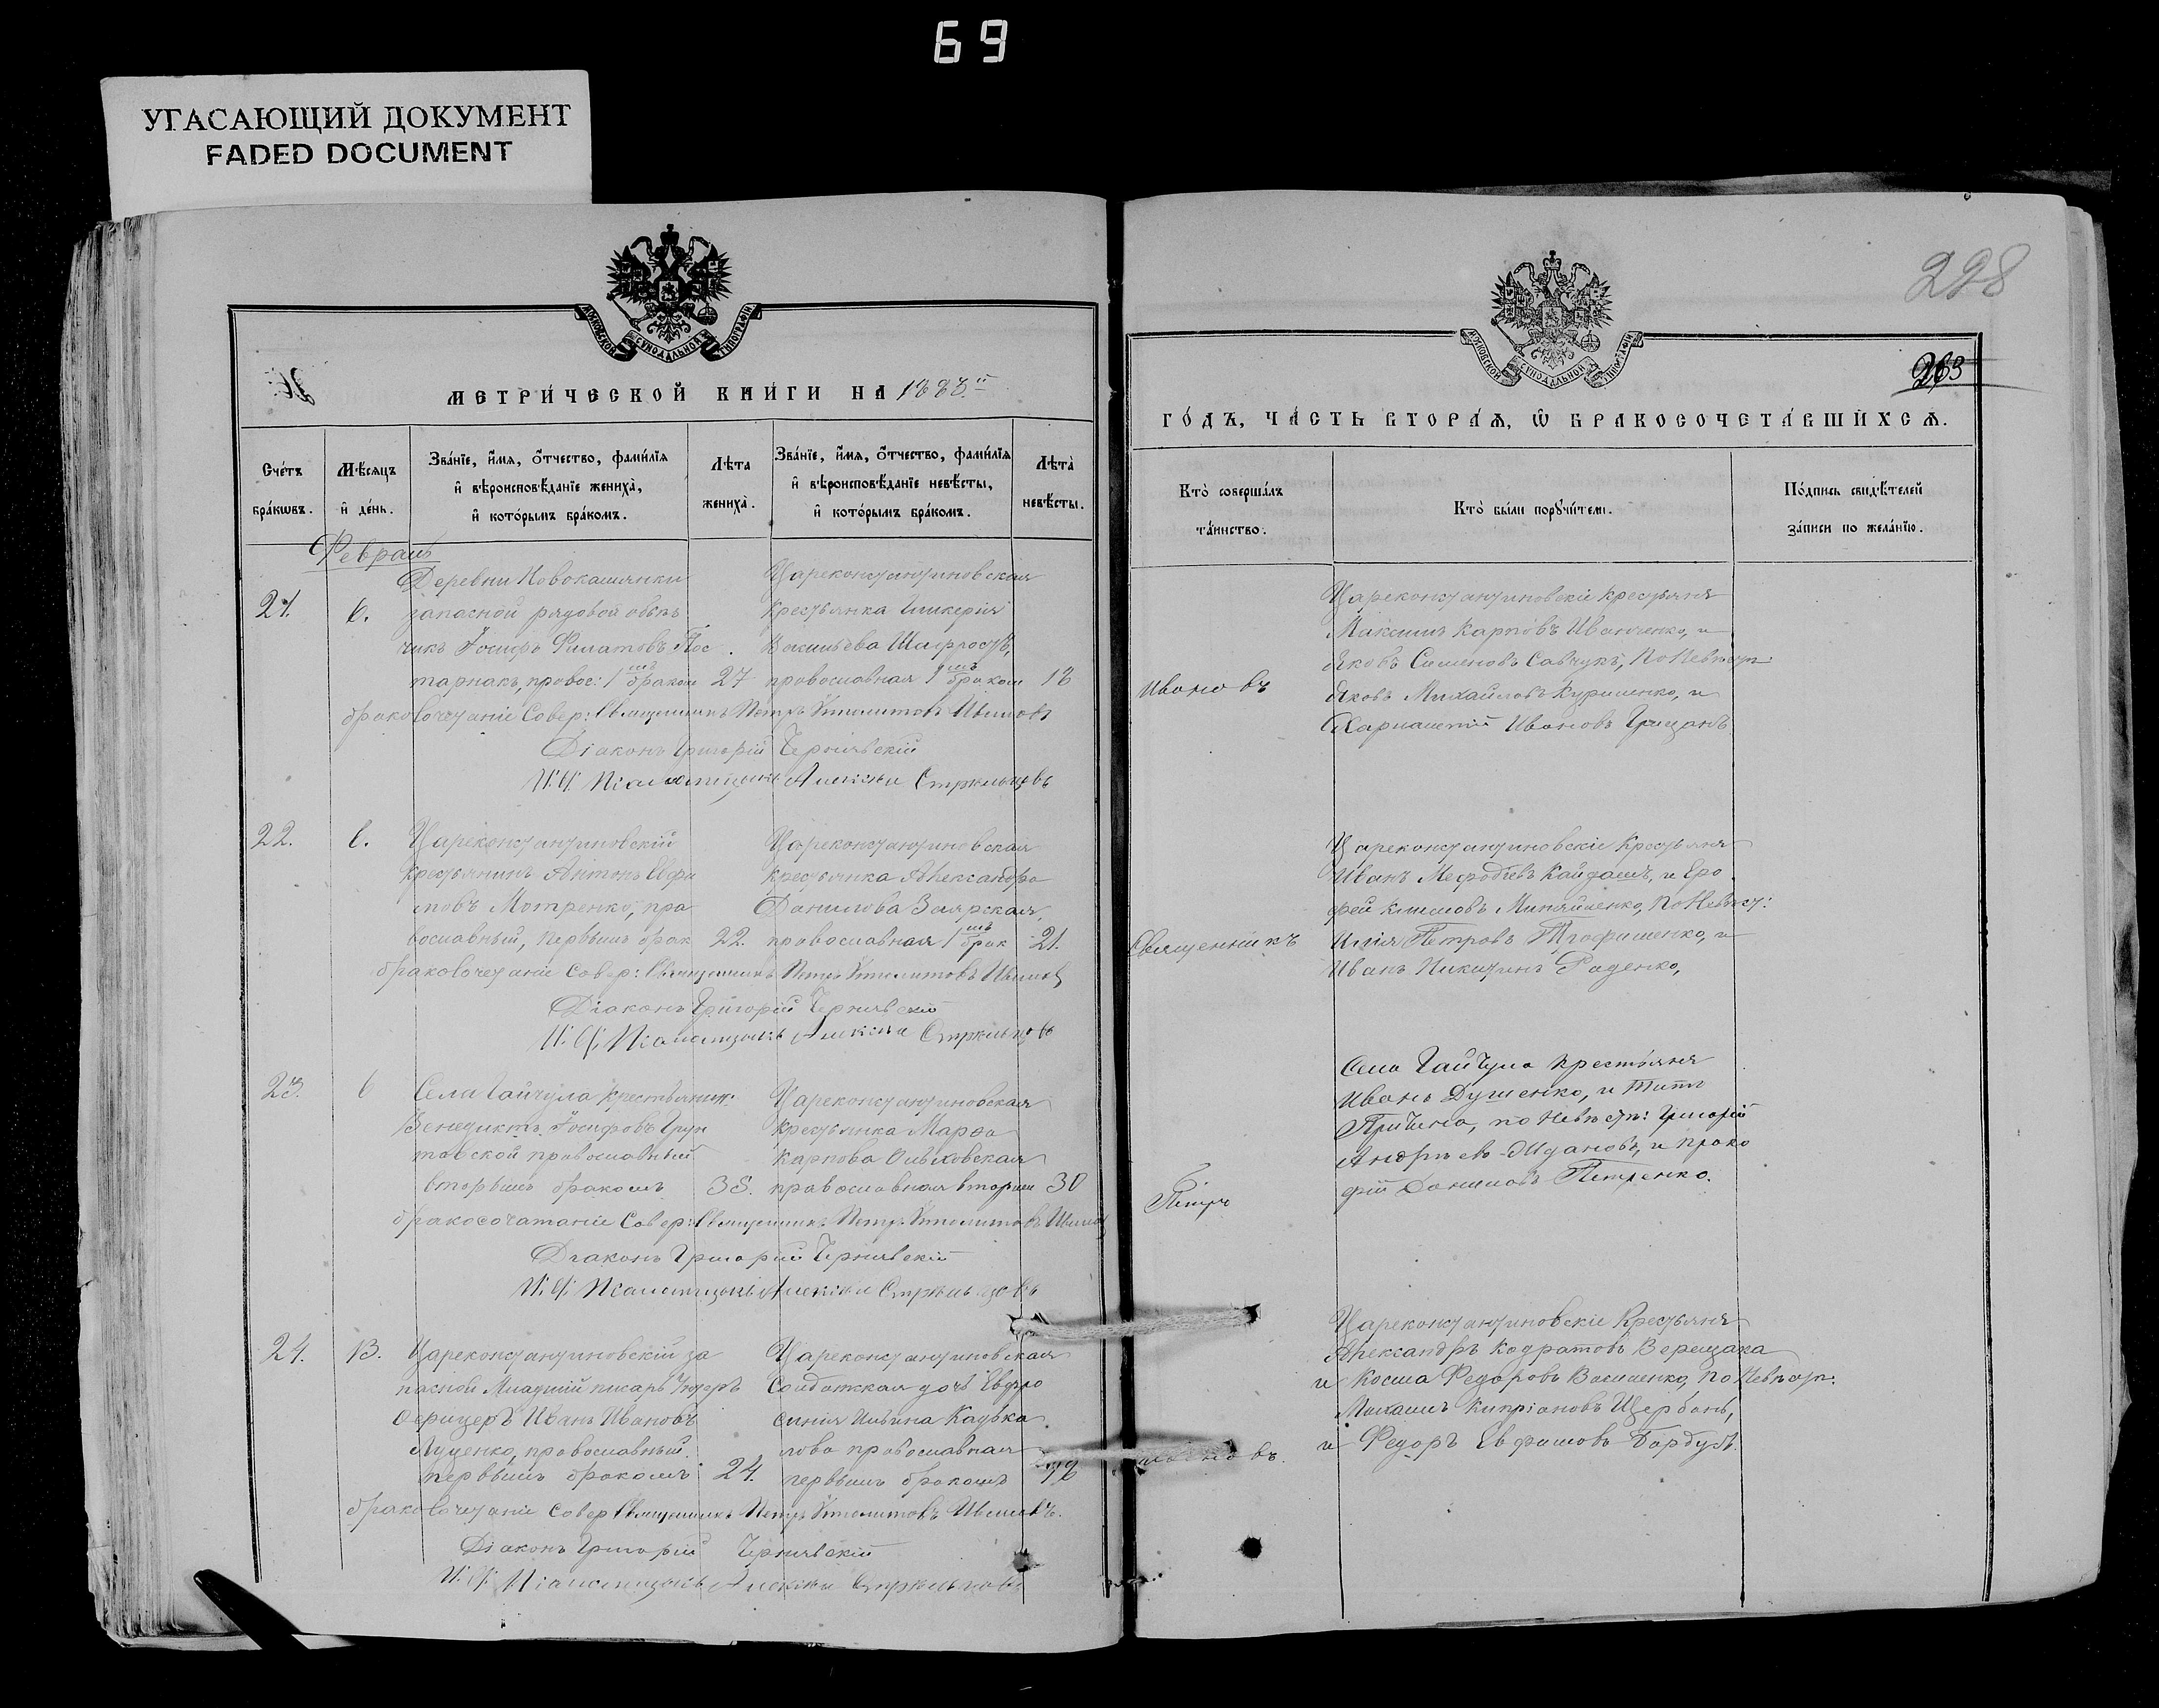 69
УГАСАЮЩИЙ ДОКУМЕНТ
FADED DOCUMENT
МОСКОВСКОЙ СУНОДАЛЬНОЙ ТИПОГРАФІИ
МЕТРИ́ЧЕСКОЙ КНИ́ГИ НА 188
Сче́тъ бра́кωвъ.
Мѣ́сяцъ и҆ де́нь.
Зва́нїе, и҆́мя, ѻ҆́тчество, фами́лїя и҆ вѣроисповѣ́данїе жениха̀, и҆ кото́рымъ бра́комъ.
Лѣ́та жениха̀.
Зва́нїе, и҆́мя, ѻ҆́тчество, фами́лїя и҆ вѣроисповѣ́данїе невѣ́сты, и҆ кото́рымъ бра́комъ.
Лѣ́та невѣ́сты.
Февраль
21. 6.
Деревни Новокаменки
запасной рядовой
Іосифъ Филатовъ Пос
тарнакъ, правос: 1 бракомъ 27
Цареконстантиновская
крестьянка Гликерія
Васильева
православная 1 бракомъ 18
бракосочетаніе Совер: Священникъ Петръ Ипполитовъ Ивановъ
Діаконъ Григорій Чернявскій
И. д. Псаломщика Алексѣй Стрѣльцовъ
22. 6.
Цареконстантиновскій
крестьянинъ Антонъ Евфи
мовъ Мотренко, пра
вославный, первымъ брак 22.
Цареконстантиновская
крестьянка Александра
Данилова Заярская,
православная 1 брак 21.
бракосочетаніе Совер: Священникъ Петръ Ипполитовъ Ивановъ
Діаконъ Григорій Чернявскій
И. д. Псаломщика Алексѣй Стрѣльцовъ
23. 6
Села Гайчула крестьянинъ
Венедиктъ Іосифовъ Грун
товской православный
вторымъ бракомъ 38.
Цареконстантиновская
крестьянка Марѳа
Карпова Ольховская
православная вторымъ 30
бракосочетаніе Совер: Священникъ Петръ Ипполитовъ Ивановъ
Діаконъ Григорій Чернявскій
И. д. Псаломщика Алексѣй Стрѣльцовъ
24. 13.
Цареконстантиновскій за
пасной Младшій писарь Унтеръ
Офицеръ Иванъ Ивановъ
Луценко, православный
первымъ бракомъ 24.
Цареконстантиновская
Солдатская дочь Евфро
синія Ильина Кадька
лова православная
первымъ бракомъ
бракосочетаніе Совер Священникъ Петръ Ипполитовъ Ивановъ.
Діаконъ Григорій Чернявскій
И. д. Псаломщика Алексѣй Стрѣльцовъ
228
МОСКОВСКОЙ СУНОДАЛЬНОЙ ТИПОГРАФІИ
ГО́ДЪ, ЧА́СТЬ ВТОРА́Ѧ, Ѽ БРАКОСОЧЕТА́ВШИХСѦ.
Кто̀ соверша́лъ та́инство.
Кто̀ бы́ли поручи́тели.
По́дпись свидѣ́телей за́писи по жела́нїю.
Ивановъ
Цареконстантиновскіе крестьяне
Максимъ Карповъ Иванченко, и
Яковъ Семеновъ Савчукъ, по Невѣст:
Яковъ Михайловъ Куриленко, и
Харлампій Ивановъ Грицанъ
Священникъ
Цареконстантиновскіе крестьяне
Иванъ Мефодіевъ Кайдашъ, и Еро
фей Климовъ Миняйленко, по Невѣст:
Илія Петровъ Трофименко, и
Иванъ Никитинъ Раденко,
Петръ
Села Гайчула крестьяне
Иванъ Душенко, и Титъ
Причина, по Невѣст: Григорій
Андрѣевъ Ждановъ, и Проко
фій Даниловъ Петренко.
Ивановъ.
Цареконстантиновскіе Крестьяне
Александръ Кодратовъ Верещака
и Косма Федоровъ Василенко, по Невѣст:
Михаилъ Кипріановъ Щербань,
и Федоръ Евфимовъ Бардусъ.